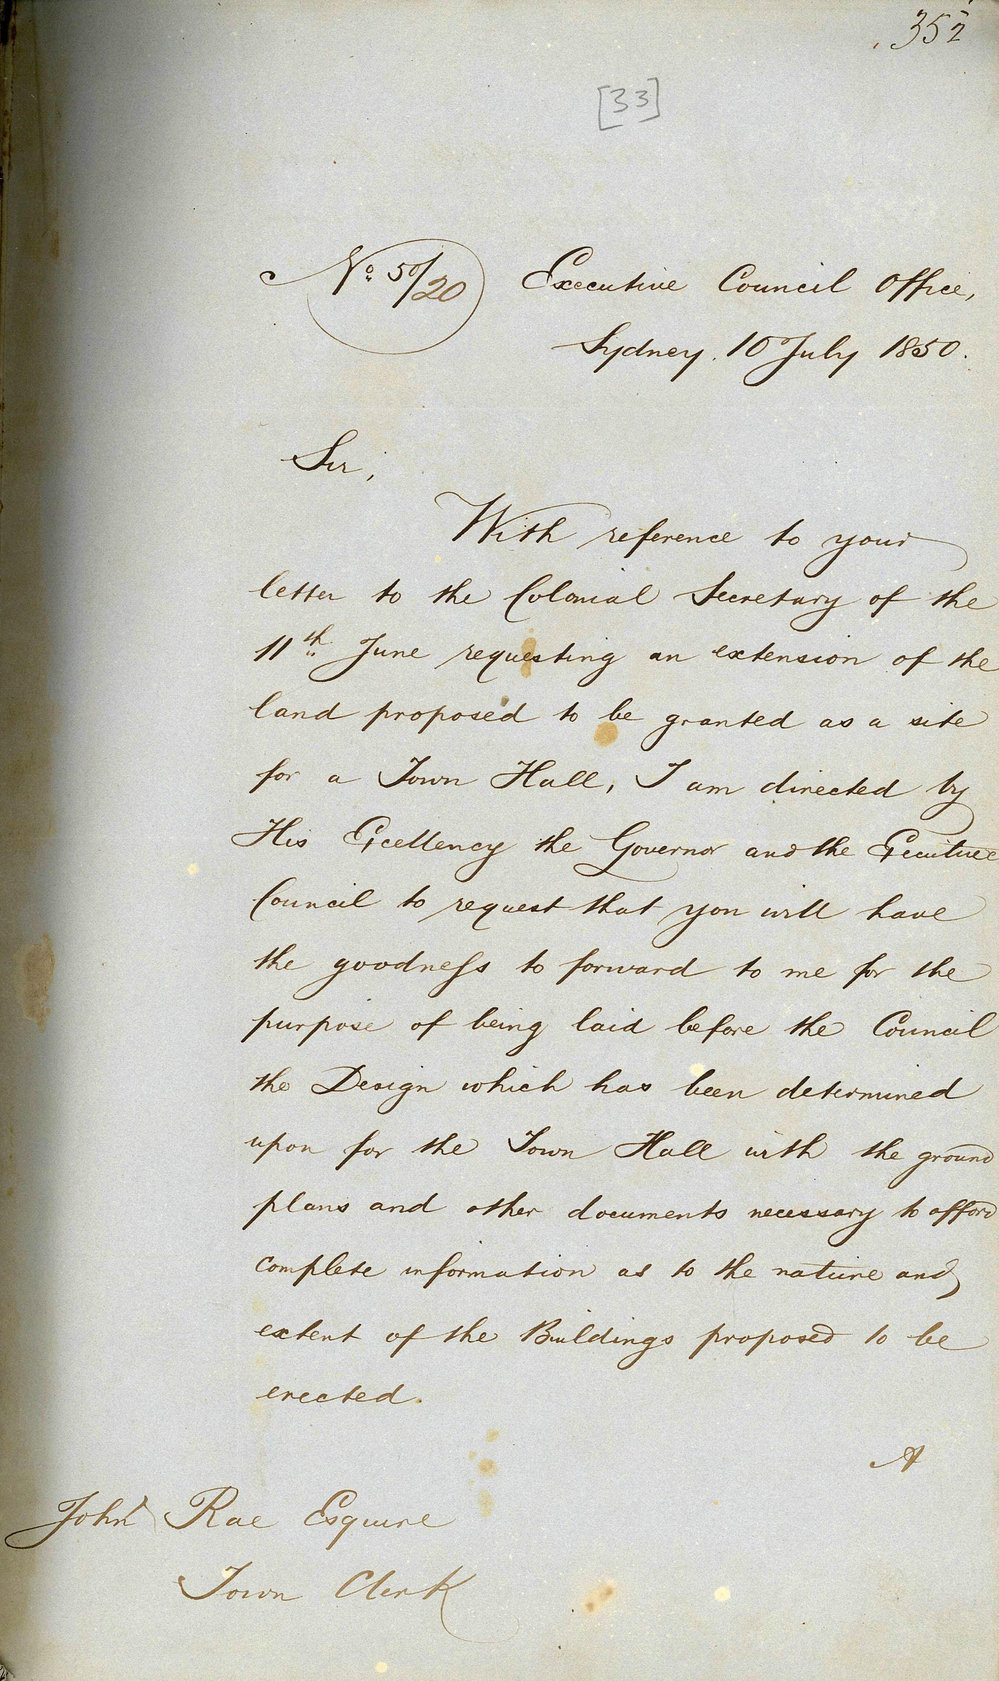 352
[33]
No. 50/20
Executive Council Office,
Sydney. 10 July 1850.
Sir,
With reference to your
letter to the Colonial Secretary of the
11th June requesting an extension of the
land proposed to be granted as a site
for a Town Hall, I am directed by
His Excellency the Governor and the Executive
Council to request that you will have
the goodness to forward to me for the
purpose of being laid before the Council
the Design which has been determined
upon for the Town Hall with the ground
plans and other documents necessary to afford
complete information as to the nature and
extent of the Buildings proposed to be
erected.
A
John Rae Esquire
Town Clerk